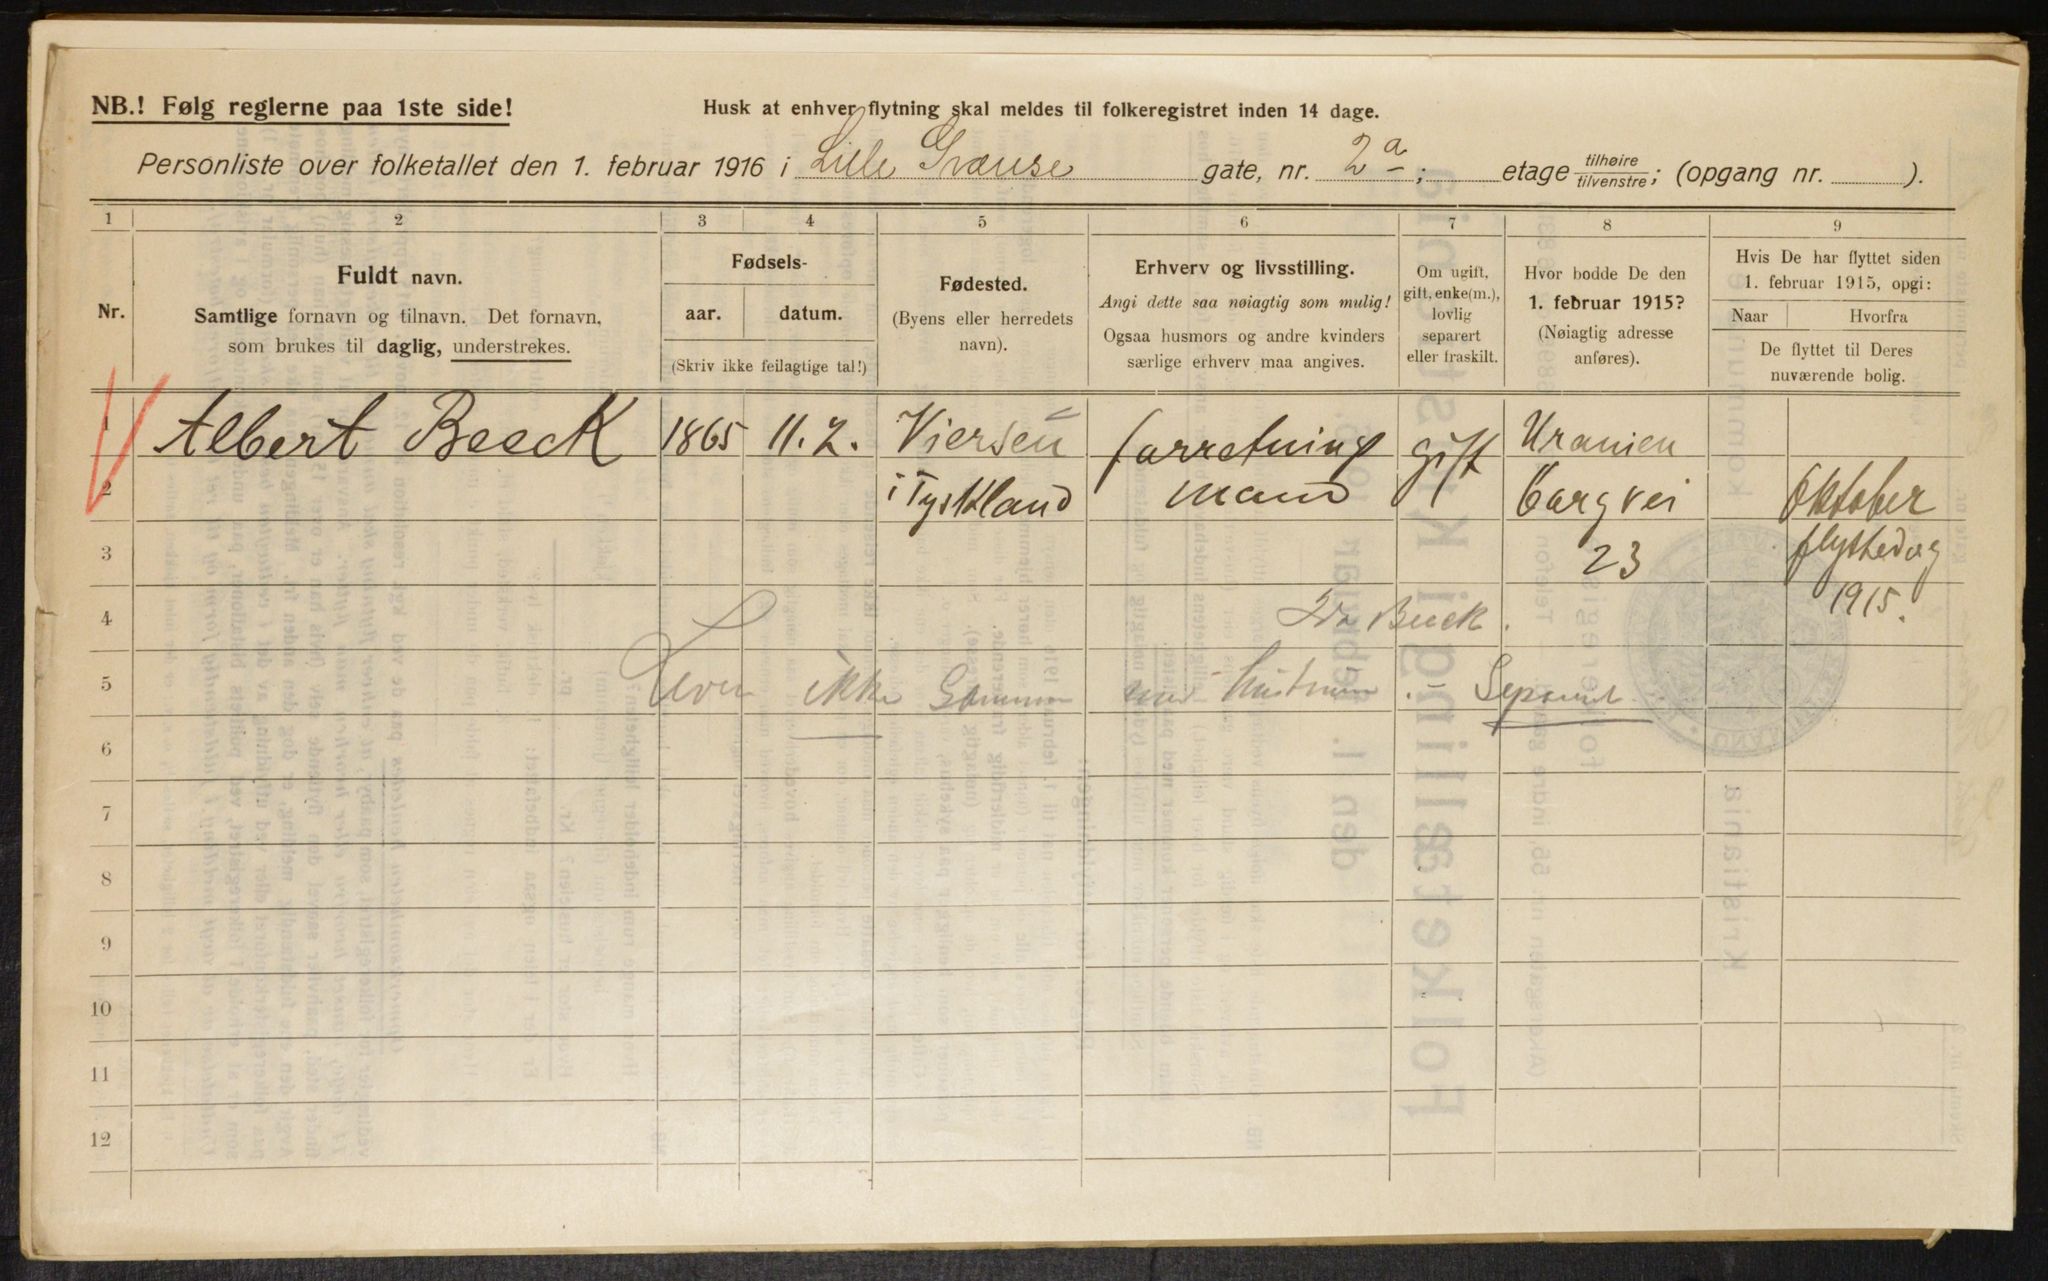 NB.! Følg reglerne paa 1ste side!
Husk at enhver flytning skal meldes til folkeregistret inden 14 dage.
Personliste over folketallet den 1. februar 1916 i Lille Grænse gate, nr. 2a; etage tilhøire/tilvenstre; (opgang nr. ).
1 2 3 4 5 6 7 8 9
Nr.
Fuldt navn.
Samtlige fornavn og tilnavn. Det fornavn,
som brukes til daglig, understrekes.
Fødsels-
aar. datum.
(Skriv ikke feilagtige tal!)
Fødested.
(Byens eller herredets
navn).
Erhverv og livsstilling.
Angi dette saa nøiagtig som mulig!
Ogsaa husmors og andre kvinders
særlige erhverv maa angives.
Om ugift,
gift, enke(m.),
lovlig
separert
eller fraskilt.
Hvor bodde De den
1. februar 1915?
(Nøiagtig adresse
anføres).
Hvis De har flyttet siden
1. februar 1915, opgi:
Naar Hvorfra
De flyttet til Deres
nuværende bolig.
1 Albert Beeck 1865 11.2. Viersen forretnings gift Uranien
2 i Tyskland mand borgvei Oktober
3 23 flyttedag
4 Ida Beeck. 1915.
5 Lever ikke sammen med hustruen. - Separert
6
7
8
9
10
11
12